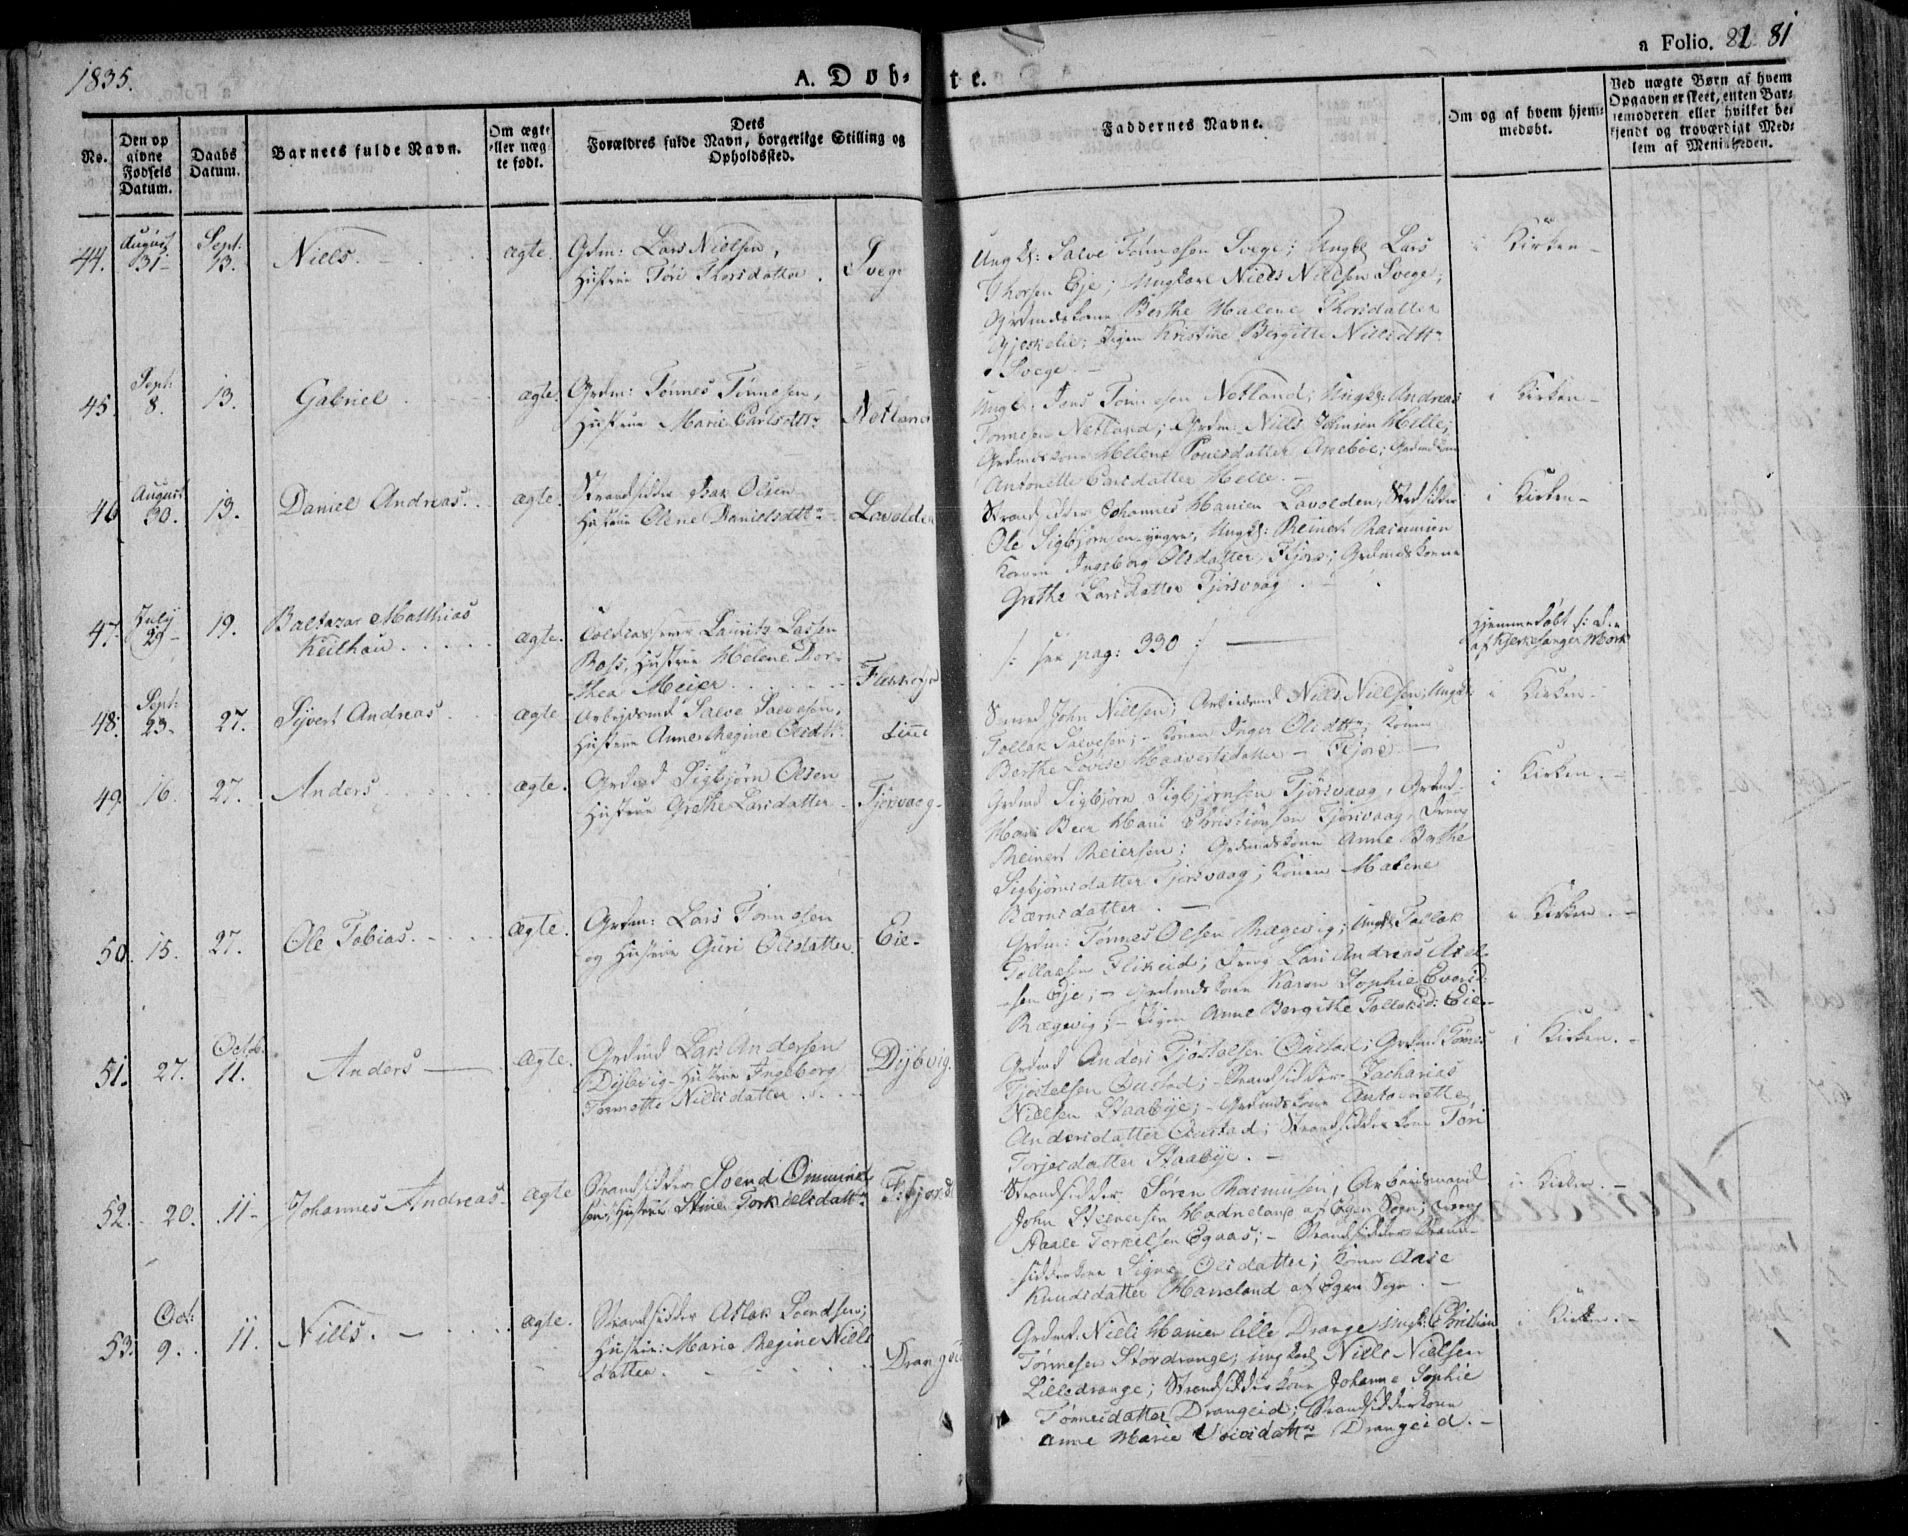 1835.
A. Døb-te.
a Folio. 81 81
No.
Den opgivne Fødsels Datum.
Daabs Datum.
Barnets fulde Navn.
Om ægte eller nægte født.
Dets Forældres fulde Navn, borgerlige Stilling og Opholdssted.
Faddernes Navne.
Om og af hvem hjemmedøbt.
Ved nægte Børn af hvem Opgaven er skeet, enten Barnemoderen eller hvilket bekjendt og troværdigt Medlem af Menigheden.
44. August 31- Sept. 13. Niels. ægte. Grdm: Lars Nielsen,
Hustrue Tøri Thorsdatter. Svege
Ungk: Salve Tønnesen Svege; Ungk Lars
Thorsen Eje; Ungkarl Niels Nielsen Svege;
Grdmdskone Berthe Malene Thorsdatter
Pigen Kristine Bergitte Nielsdttr
Svege. -
i Kirken -
45. Sept: 8. 13. Gabriel ægte. Grdm: Tønnes Tønnesen,
Hustrue Marie Carlsdttr Netland
Ungk. Jens Tønnesen Netland; Ungk: Andreas
Tønnesen Netland; Grdm: Niels Helle;
Grdmdskone Helene datter Grdmdskone
Antonette Carlsdatter Helle. -
i Kirken -
46. August 30. 13. Daniel Andreas. ægte. Strandsidder Isak Olsen
Hustrue Olene Danielsdttr Lavolden
Strandsidder Johannes Hansen Lavolden, Strdsidder
Ole Sigbjørnsen yngre, Ungk: Reinert Rasmusen
Konen Ingeborg Olsdatter, Grdmdskone
Grethe Larsdatter Fjørsvaag.
i Kirken -
47. July 29- 19. Baltazar Matthias
Keilhau ægte. Lauritz Lassen
Hustrue Helene Dorthea
Meier Flekkefjord
/: see pag: 330 :/
Hjemmedøbt
af Kirkesanger Mørk
48. Sept: 23- 27. Syvert Andreas ægte Arbejdsmd Salve Salvesen,
Hustrue Anne Regine Olsdttr
Smed John Nielsen; Arbeidsmd Niels Nielsen; Ungk:
Tollak Salvesen; - Konen Inger Olsdttr; Konen
Berthe Lovise Haavorsdatter -
i Kirken -
49. 16. 27. Anders ægte. Grdmd Sigbjørn Olsen
Hustrue Grethe Larsdatter Fjørsvaag.
Grdmd Sigbjørn Sigbjørnsen Fjørsvaag, Grdmd
Hans Christiansen Fjørsvaag, Dreng
Reinert Reiersen; Grdmdskone Anne Berthe
Sigbjørnsdatter Fjørsvaag; Konen Malene
Bærnsdatter. -
i Kirken. -
50. 15. 27. Ole Tobias. ægte. Grdm: Lars Tønnesen
og Hustrue Guri Olsdatter. Eie-
Grdm: Tønnes Olsen Rægevig; Ungk Tollak
Tollaksen Flikeid; Dreng Lars Andreas
Eje; - Grdmdskone Karen Sophie
Rægevig; - Pigen Anne Bergithe Tollaksd: Eie.
i Kirken. -
51. 27. Octob. 11. Anders ægte. Grdmd Lars Andersen
Dybvig- Hustrue Ingeborg
Tonnette Nielsdatter Dybvig.
Grdmd Anders Tjøstelsen Oustad; Grdmd Tønnes
Tjøstelsen Oustad; - Strandsidder Zacharias
Nielsen Staabye; - Grdmdskone Antonette,
Andersdatter Oustad; Strandsidderkone Tøri
Torjersdatter Staabye. -
i Kirken. -
52. 20. 11- Johannes Andreas. ægte Strandsidder Svend Ommundsen,
Hustrue Stine Torkildsdattr
Strandsidder Søren Rasmusen; Arbeidsmand
John af Egen Sogn; Dreng
Aale Torkelsen Egaas; - Strandsidder
sidderkone Signe Olsdatter; Konen Aase
Knudsdatter af Egen Sogn. -
i Kirken. -
53. Oct: 9. 11. Niels. - ægte. Strandsidder Aslak Svendsen;
Hustrue: Marie Regine Niels
datter. Drangeid
Grdmd. Niels Hansen lille Drange Ungk: Christian
Tønnesen Stordrange; Ungkarl Niels Nielsen
Lilledrange; Strandsidderkone Johanne Sophie
Tønnesdatter Drangeid; Strandsidderkone
Anne Marie Drangeid. -
i Kirken. -